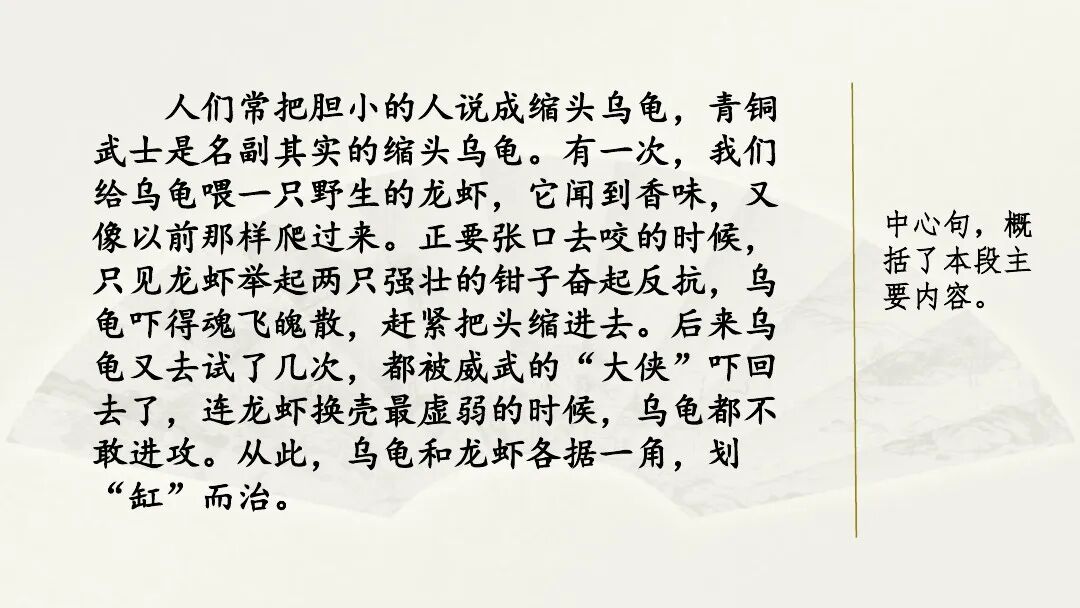 人们常把胆小的人说成缩头乌龟，青铜
武士是名副其实的缩头乌龟。有一次，我们
给乌龟喂一只野生的龙虾，它闻到香味，又
像以前那样爬过来。正要张口去咬的时候，
只见龙虾举起两只强壮的钳子奋起反抗，乌
龟吓得魂飞魄散，赶紧把头缩进去。后来乌
龟又去试了几次，都被威武的“大侠”吓回
去了，连龙虾换壳最虚弱的时候，乌龟都不
敢进攻。从此，乌龟和龙虾各据一角，划
“缸”而治。
中心句，概
括了本段主
要内容。